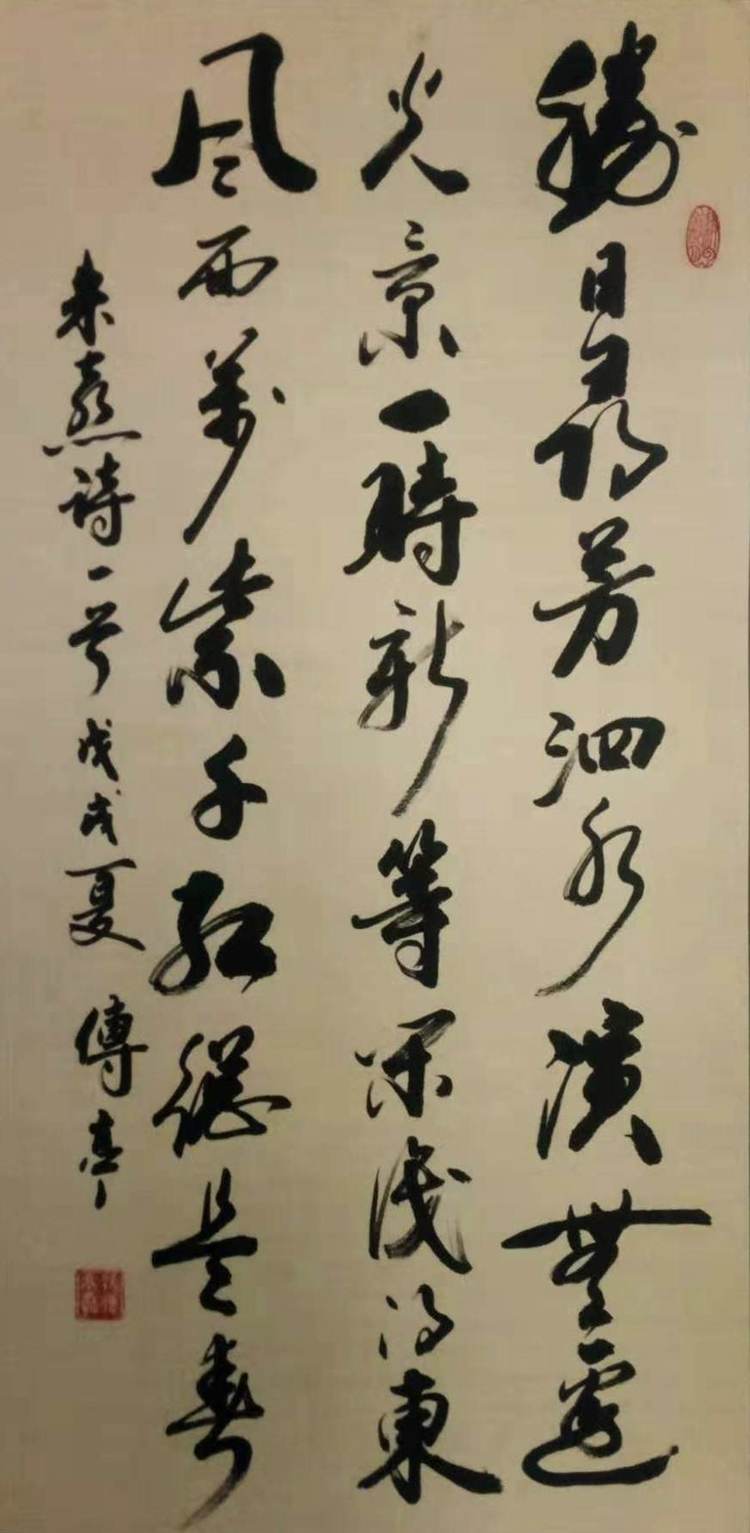 勝日尋芳泗水濱無邊
光景一時新等閑識得東
風面萬紫千紅總是春
朱熹詩一首 戊戌夏 傅亭